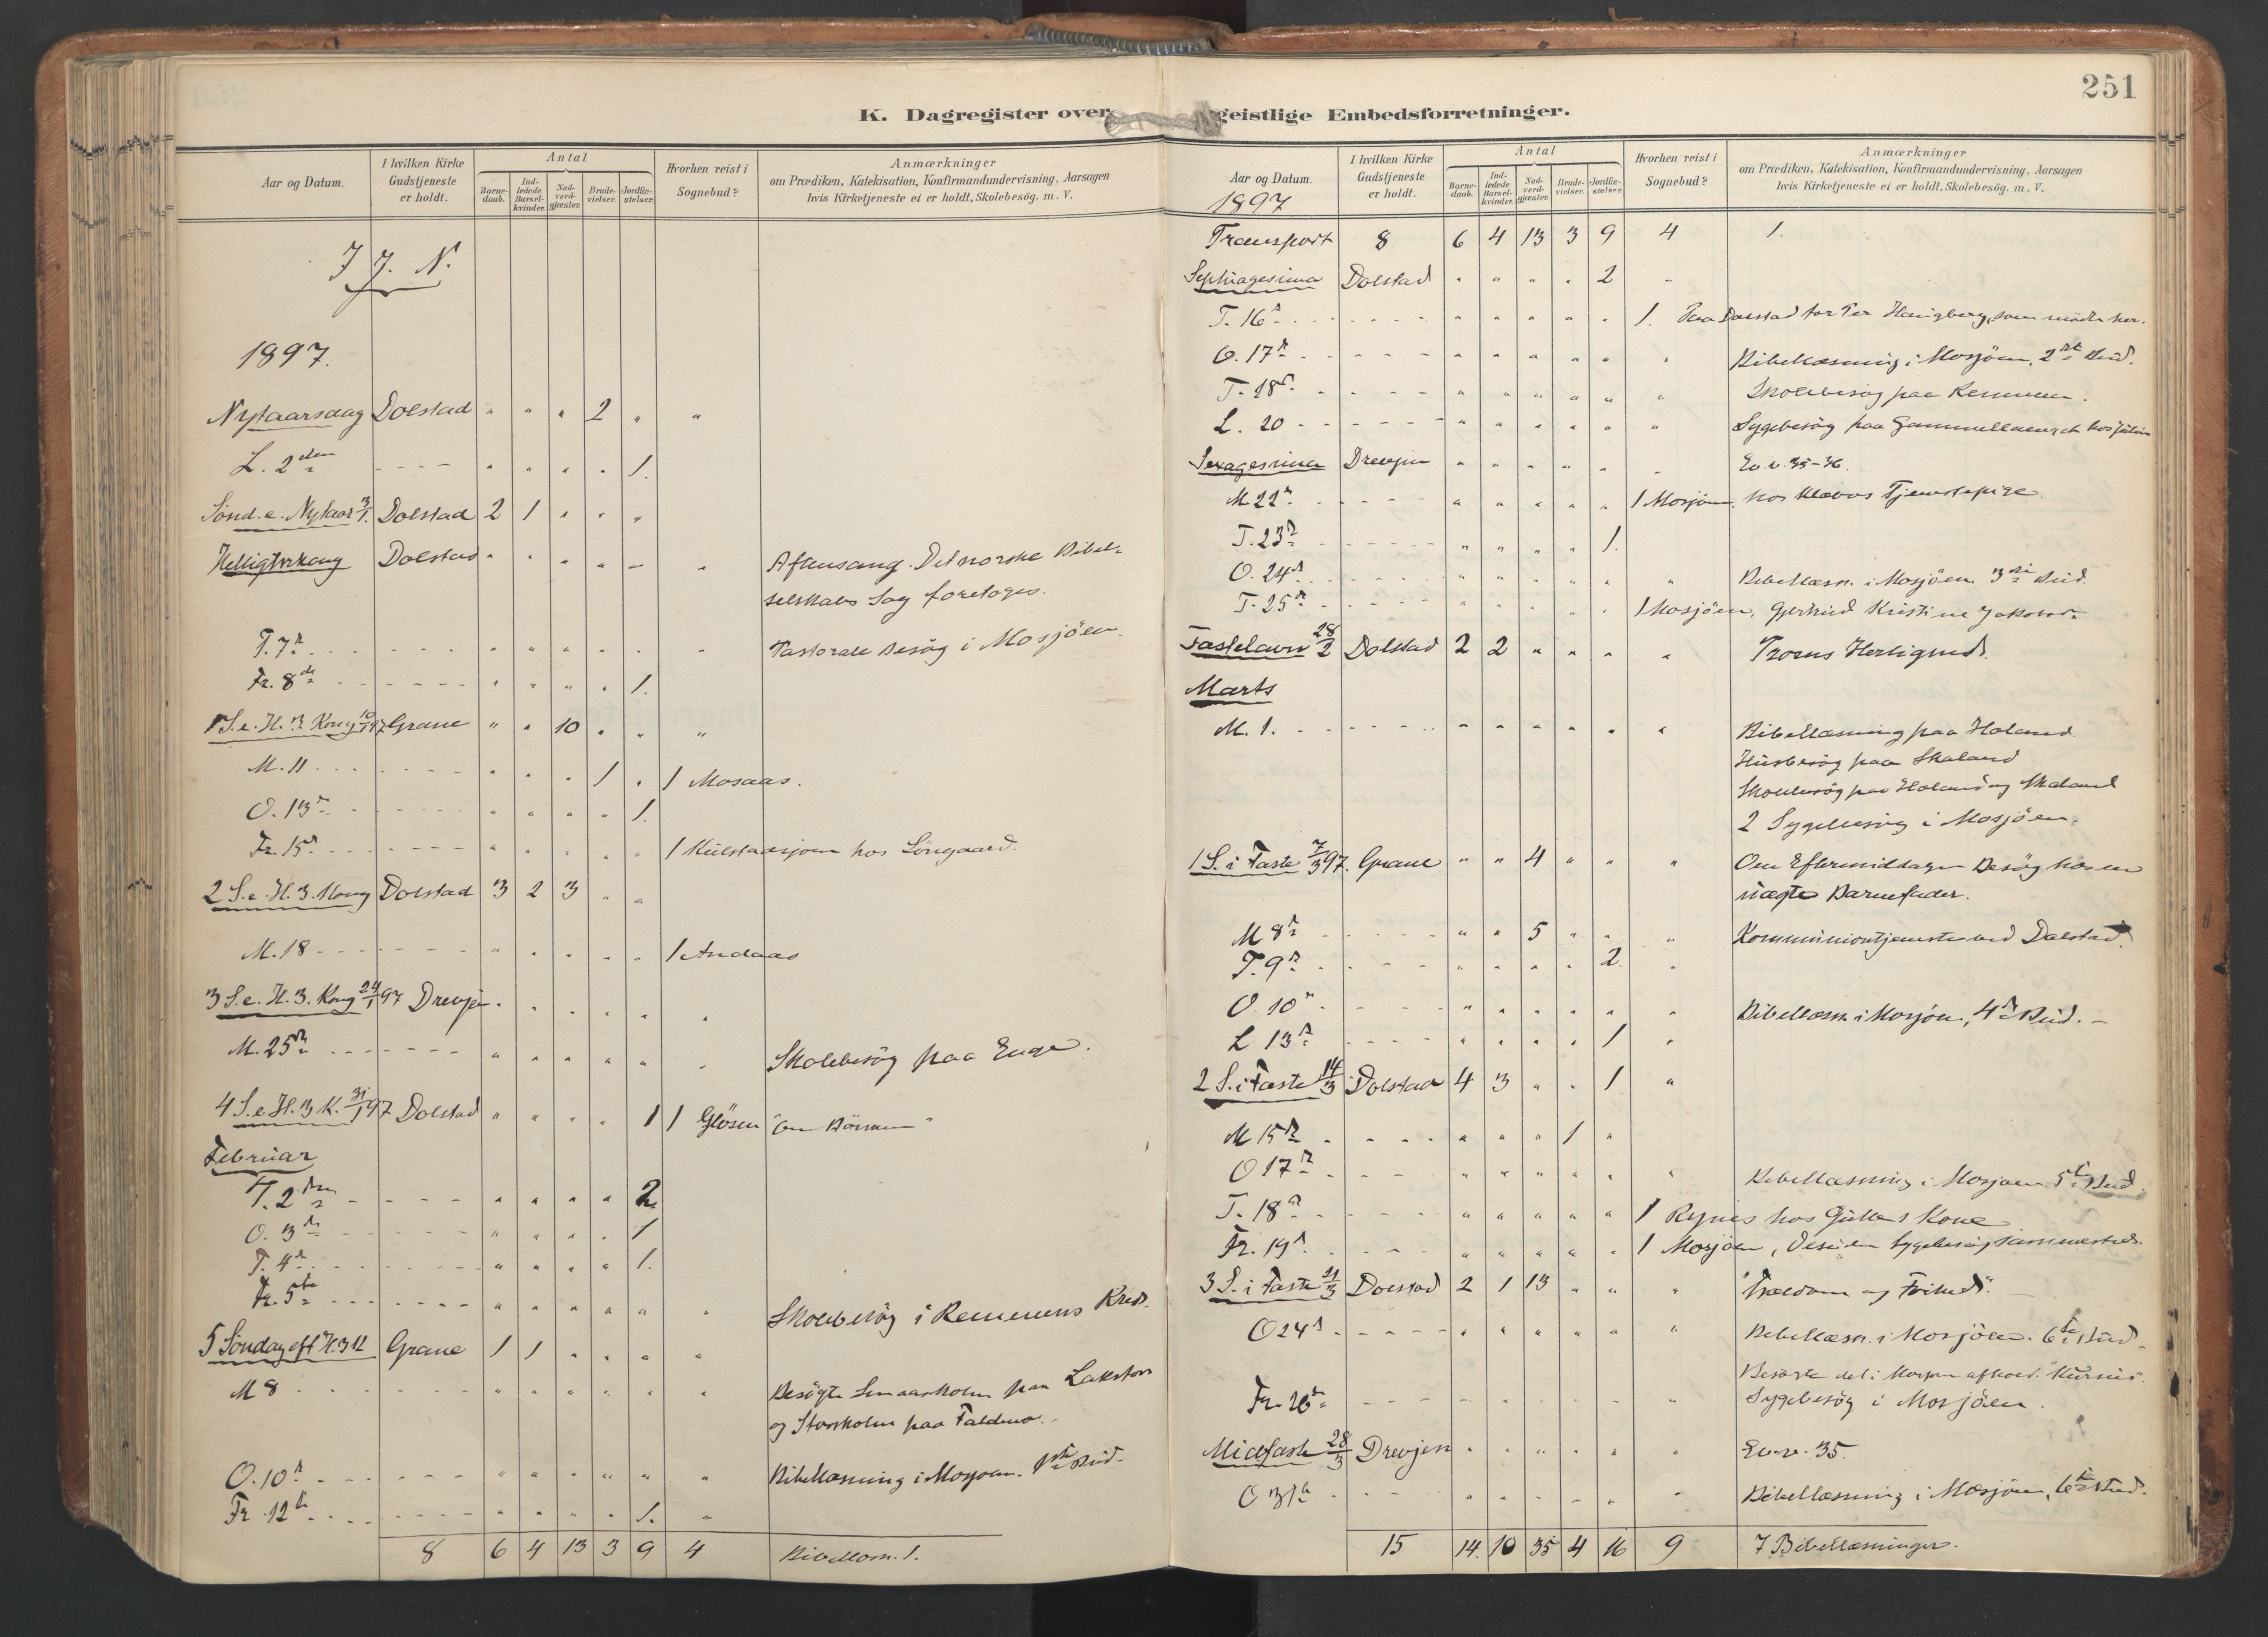 251
K. Dagregister over geistlige Embedsforretninger.
Aar og Datum. I hvilken Kirke Gudstjeneste er holdt. Antal Barnedaab. Indledede Barselkvinder. Nadverdgjæster. Brudevielser. Jordfæstelser. Hvorhen reist i Sognebud? Anmærkninger om Prædiken, Katekisation, Konfirmandundervisning, Aarsagen hvis Kirketjeneste ei er holdt, Skolebesög. m. V.
J. J. N.
1897.
Nytaarsdag Dolstad " " " 2 " "
L. 2den - - - - " " " " 1.
Sønd. e. Nytaar 3/1. Dolstad 2 1 " " "
Helligtrekong Dolstad " " " " " " Aftensang. Det norske Bibel-
selskabs Sag foretoges.
T. 7d - - - - " " " " " " Pastorale Besög i Mosjöen.
Fr. 8de - - - - " " " " 1.
1 S. e. H. 3 Kong 10/1 97 Grane " " 10 " " "
M. 11 - - - - " " " 1 " 1 Mosaas.
O. 13d - - - - " " " " 1.
Fr. 15d - - - - " " " " " 1 Kulstadsjøen hos
2 S. e. H. 3. Kong Dolstad 3 2 3 " "
M. 18 - - - - " " " " " 1 Andaas
3 S. e. H. 3. Kong 24/1 97 Drevjen " " " " " "
M. 25d - - - - " " " " " " Skolebesög paa Enge.
4 S. e H. 3 K. 31/1 97 Dolstad " " " " 1 1 Gløsen
Februar
T. 2den - - - - " " " " 2
O. 3de - - - - " " " " 1
T. 4d - - - - " " " " 1.
Fr. 5te - - - - " " " " " " Skolebesög i Remmens Kreds.
5 Söndag eft H. 3 K Grane 1 1 " " " "
M 8 - - - - " " " " " " Besögte Smaaskolen paa Laksfors
og Storskolen paa
O. 10d - - - - " " " " " " Bibellæsning i Mosjöen. 1ste Bud.
Fr. 12te - - - - " " " " 1. "
8 6 4 13 3 9 4 Bibellæsn. 1.
Aar og Datum. I hvilken Kirke Gudstjeneste er holdt. Antal Barnedaab. Indledede Barselkvinder. Nadverdgjæster. Brudevielser. Jordfæstelser. Hvorhen reist i Sognebud? Anmærkninger om Prædiken, Katekisation, Konfirmandundervisning, Aarsagen hvis Kirketjeneste ei er holdt, Skolebesög. m. V.
1897
Transport 8 6 4 13 3 9 4 1.
Septuagesima Dolstad " " " " 2 "
T. 16d - - - - " " " " " 1. Paa Dolstad for Per som mödte her.
O. 17d - - - - " " " " " " Bibellæsning i Mosjöen, 2det Bud.
T. 18d - - - - " " " " " " Skolebesög paa Remmen.
L. 20 - - - - " " " " " " Sygebesög paa
Sexagesima Drevjen " " " " " " Ev. v. 35-36.
M. 22d - - - - " " " " " 1 Mosjöen. hos Klævos Tjenestepige.
T. 23d - - - - " " " " 1.
O. 24d - - - - " " " " " " Bibellæsn. i Mosjöen 3die Bud.
T. 25d - - - - " " " " " 1 Mosjöen, Gjertrud Kristine
Fastelavn 28/2 Dolstad 2 2 " " " " Troens Herlighed.
Marts
M. 1. - - - - " " " " " " Bibellæsning paa Holand.
Husbesög paa Skaland
Skolebesög paa Holand og Skaland
2 Sygebesög i Mosjöen.
1 S. i Faste 7/3 97. Grane " " 4 " " " Om Eftermiddagen Besög hos en
uægte Barnefader.
M 8d - - - - " " 5 " " " Kommuniontjeneste ved Dolstad.
T. 9d - - - - " " " " 2. "
O. 10d - - - - " " " " " " Bibellæsn. i Mosjöen, 4de Bud. -
L 13d - - - - " " " " 1 "
2 S. i Faste 14/3 Dolstad 4 3 " " 1 "
M 15d - - - - " " " 1 "
O 17d - - - - " " " " " " Bibellæsning i Mosjøen 5te Bud.
T. 18d - - - - " " " " " 1 Rynes hos Kone
Fr. 19d - - - - " " " " " 1 Mosjöen, desuden Sygebesög sammesteds.
3 S. i Faste 21/3 Dolstad 2 1 13 " " " "Trældom og Frihed".
O 24d - - - - " " " " " " Bibellæsn. i Mosjöen. 6te Bud.
Besögte det i Mosjøen afhold. Kursus.
Fr. 26d - - - - " " " " " " Sygebesög i Mosjöen.
Midfaste 28/3 Drevjen " " " " " " Ev. v. 35.
O 31te - - - - " " " " " " Bibellæsning i Mosjöen, 6te Bud.
15 14. 10 35 4 16 9 7 Bibellæsninger.